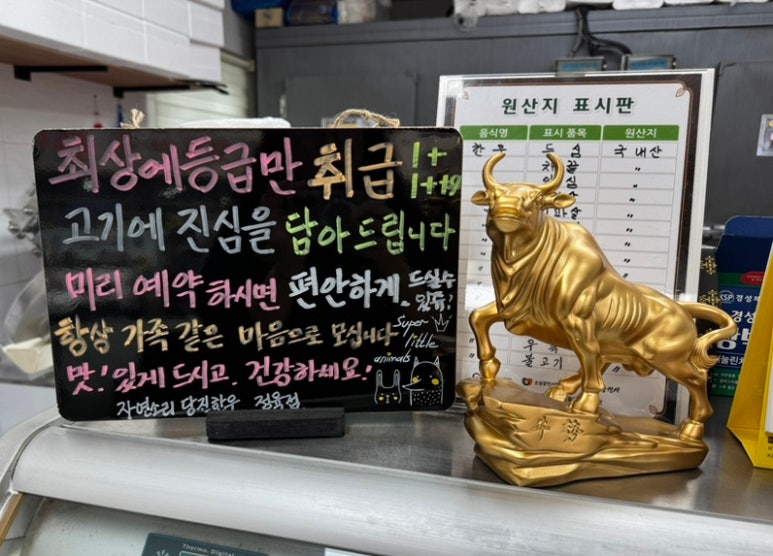 최상에등급만 취급 1+
1++9
고기에 진심을 담아드립니다
미리 예약 하시면 편안하게 드실수
있쥬!
항상 가족 같은 마음으로 모십니다
맛!있게 드시고. 건강하세요!
자연소리 당진한우 정육점
Super
little
animals
원산지 표시판
음식명 표시 품목 원산지
한우 등심 국내산
채끝
안심
우족
불고기
경성
Thermo. Digital